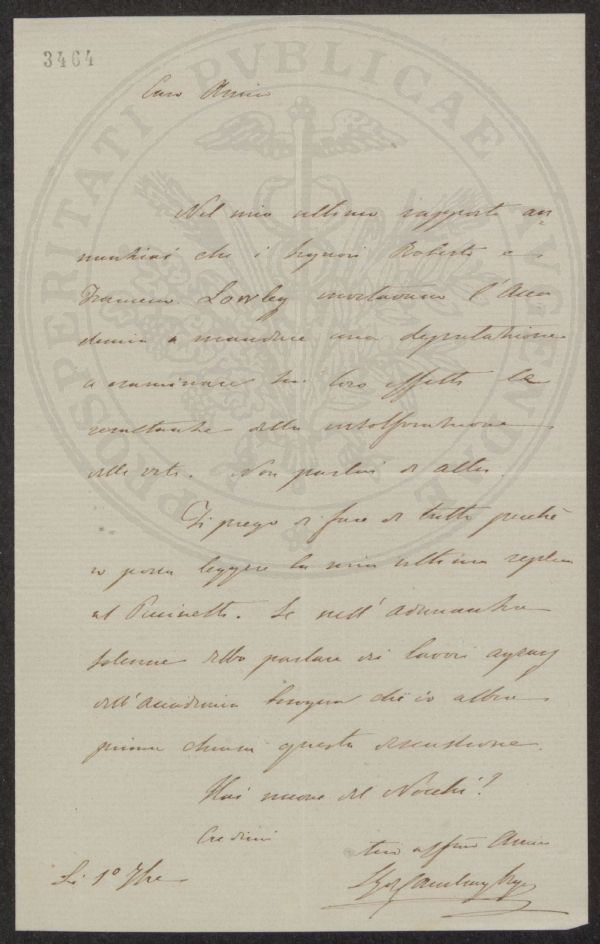 3464
PROSPERITATI PVBLICAE AVGENDAE
Caro Amico
Nel mio ultimo rapporto an=
nunziai che i Signori Roberto e
Francesco Lawley invitavano l'Acca
demia a mandare una deputazione
a esaminare su i loro effetti le
resultanze della insolforazione
delle viti. Non parlai di altro.
Ti prego di fare di tutto perchè
io possa leggere la mia ultima replica
al Puccinotti. Se nell'adunanza
solenne debbo parlare dei lavori
dell'Accademia bisogna che io abbia
prima chiusa questa discussione.
Hai nuove del Nocchi?
Credimi
tuo affmo Amico
Li 1º 7bre